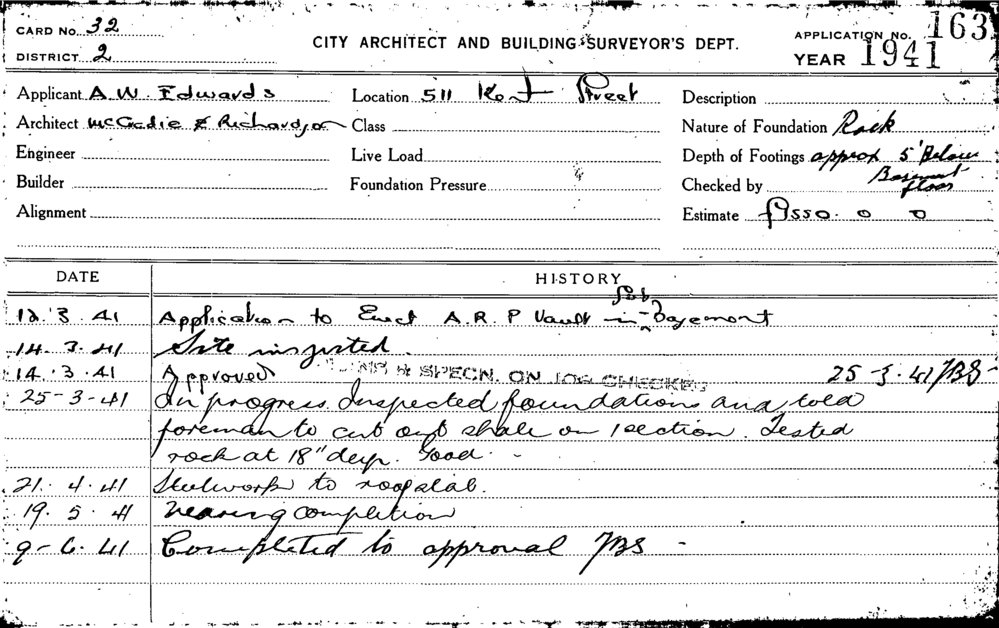 CARD No. 32
DISTRICT 2
CITY ARCHITECT AND BUILDING SURVEYOR'S DEPT.
APPLICATION No. 163
YEAR 1941
Applicant A.W. Edwards
Architect McCredie & Richardson
Engineer
Builder
Alignment
Location 511 Kent Street
Class
Live Load
Foundation Pressure
Description
Nature of Foundation Rock
Depth of Footings approx 5' Below
Basement
floor
Checked by
Estimate £9550. 0 0
DATE HISTORY
12.3.41 Application to Erect A.R.P Vault in Sub-Basement
14.3.41 Site inspected.
14.3.41 Approved & SPECN. ON JOB CHECKED 25-3-41 JBS-
25-3-41 In progress. Inspected foundations and told
foreman to cut out shale on 1 section. Tested
rock at 18" deep. Good. -
21.4.41 Steelwork to roof slab.
19.5.41 Nearing completion
9-6.41 Completed to approval JBS -